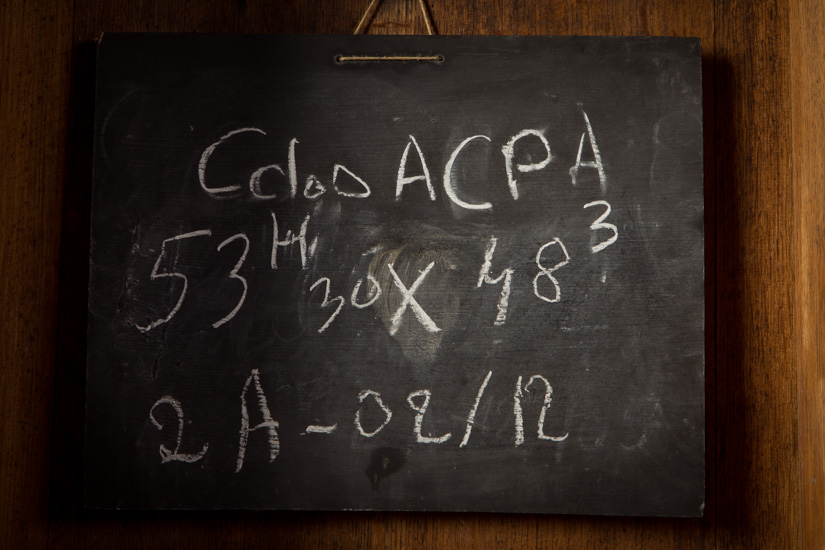 Cdoo ACPA
53 H 30 X 48 3
2A-02/12